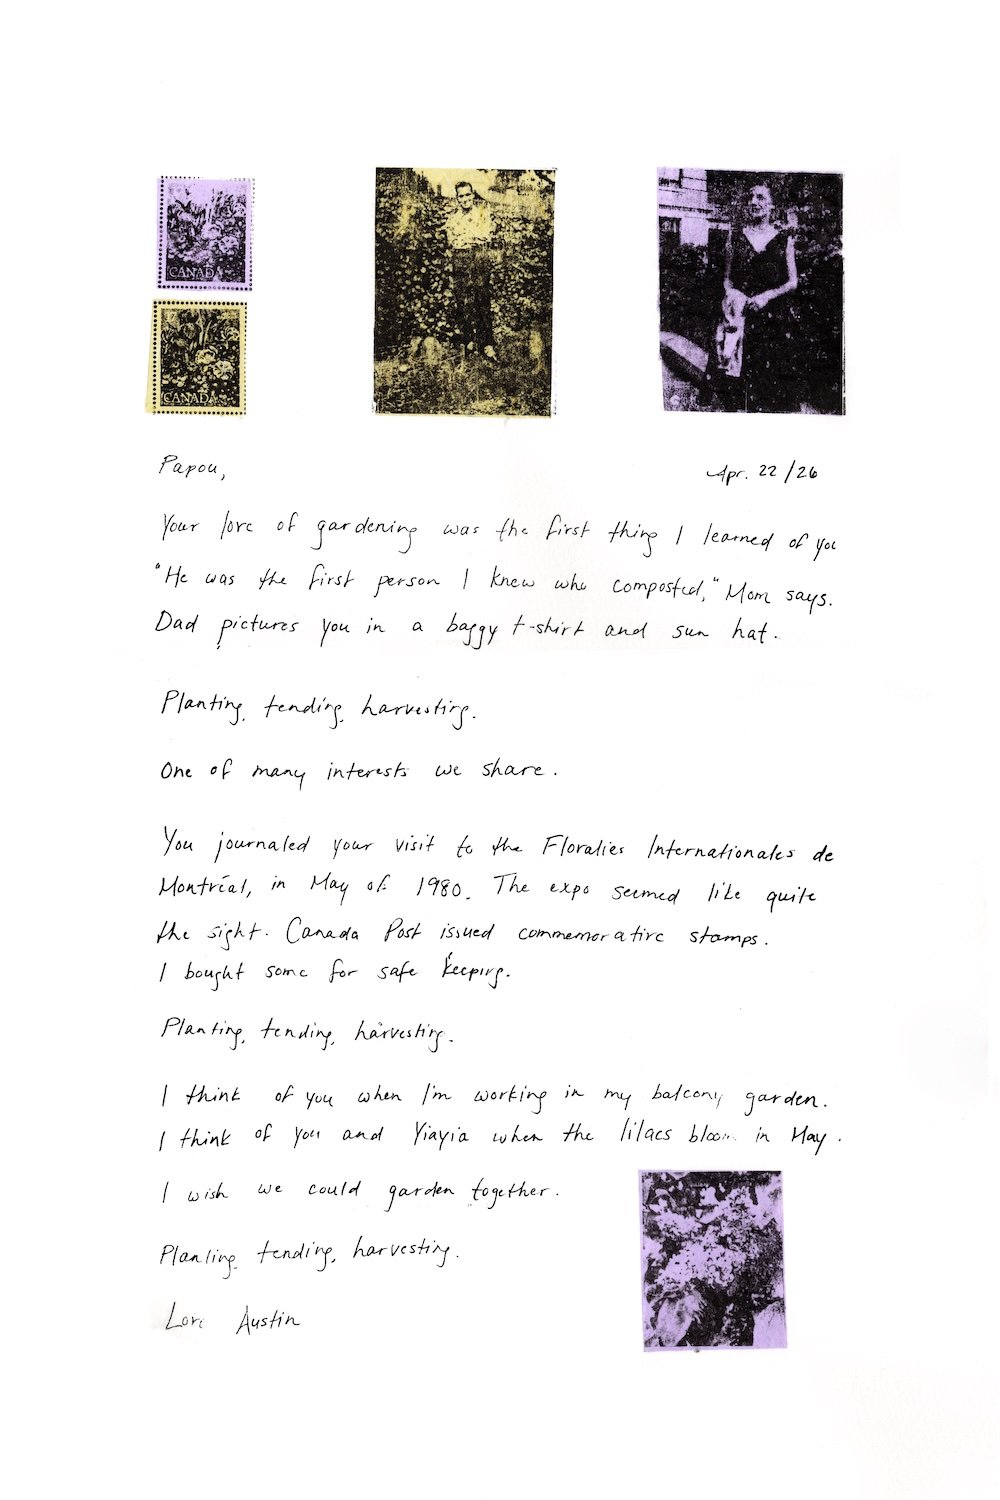 CANADA
CANADA
Papou,
Apr. 22/26
Your love of gardening was the first thing I learned of you
"He was the first person I knew who composted," Mom says.
Dad pictures you in a baggy t-shirt and sun hat.
Planting, tending, harvesting.
One of many interests we share.
You journaled your visit to the Floralies Internationales de
Montréal, in May of 1980. The expo seemed like quite
the sight. Canada Post issued commemorative stamps.
I bought some for safe keeping.
Planting, tending, harvesting.
I think of you when I'm working in my balcony garden.
I think of you and Yiayia when the lilacs bloom in May.
I wish we could garden together.
Planting, tending, harvesting.
Love Austin